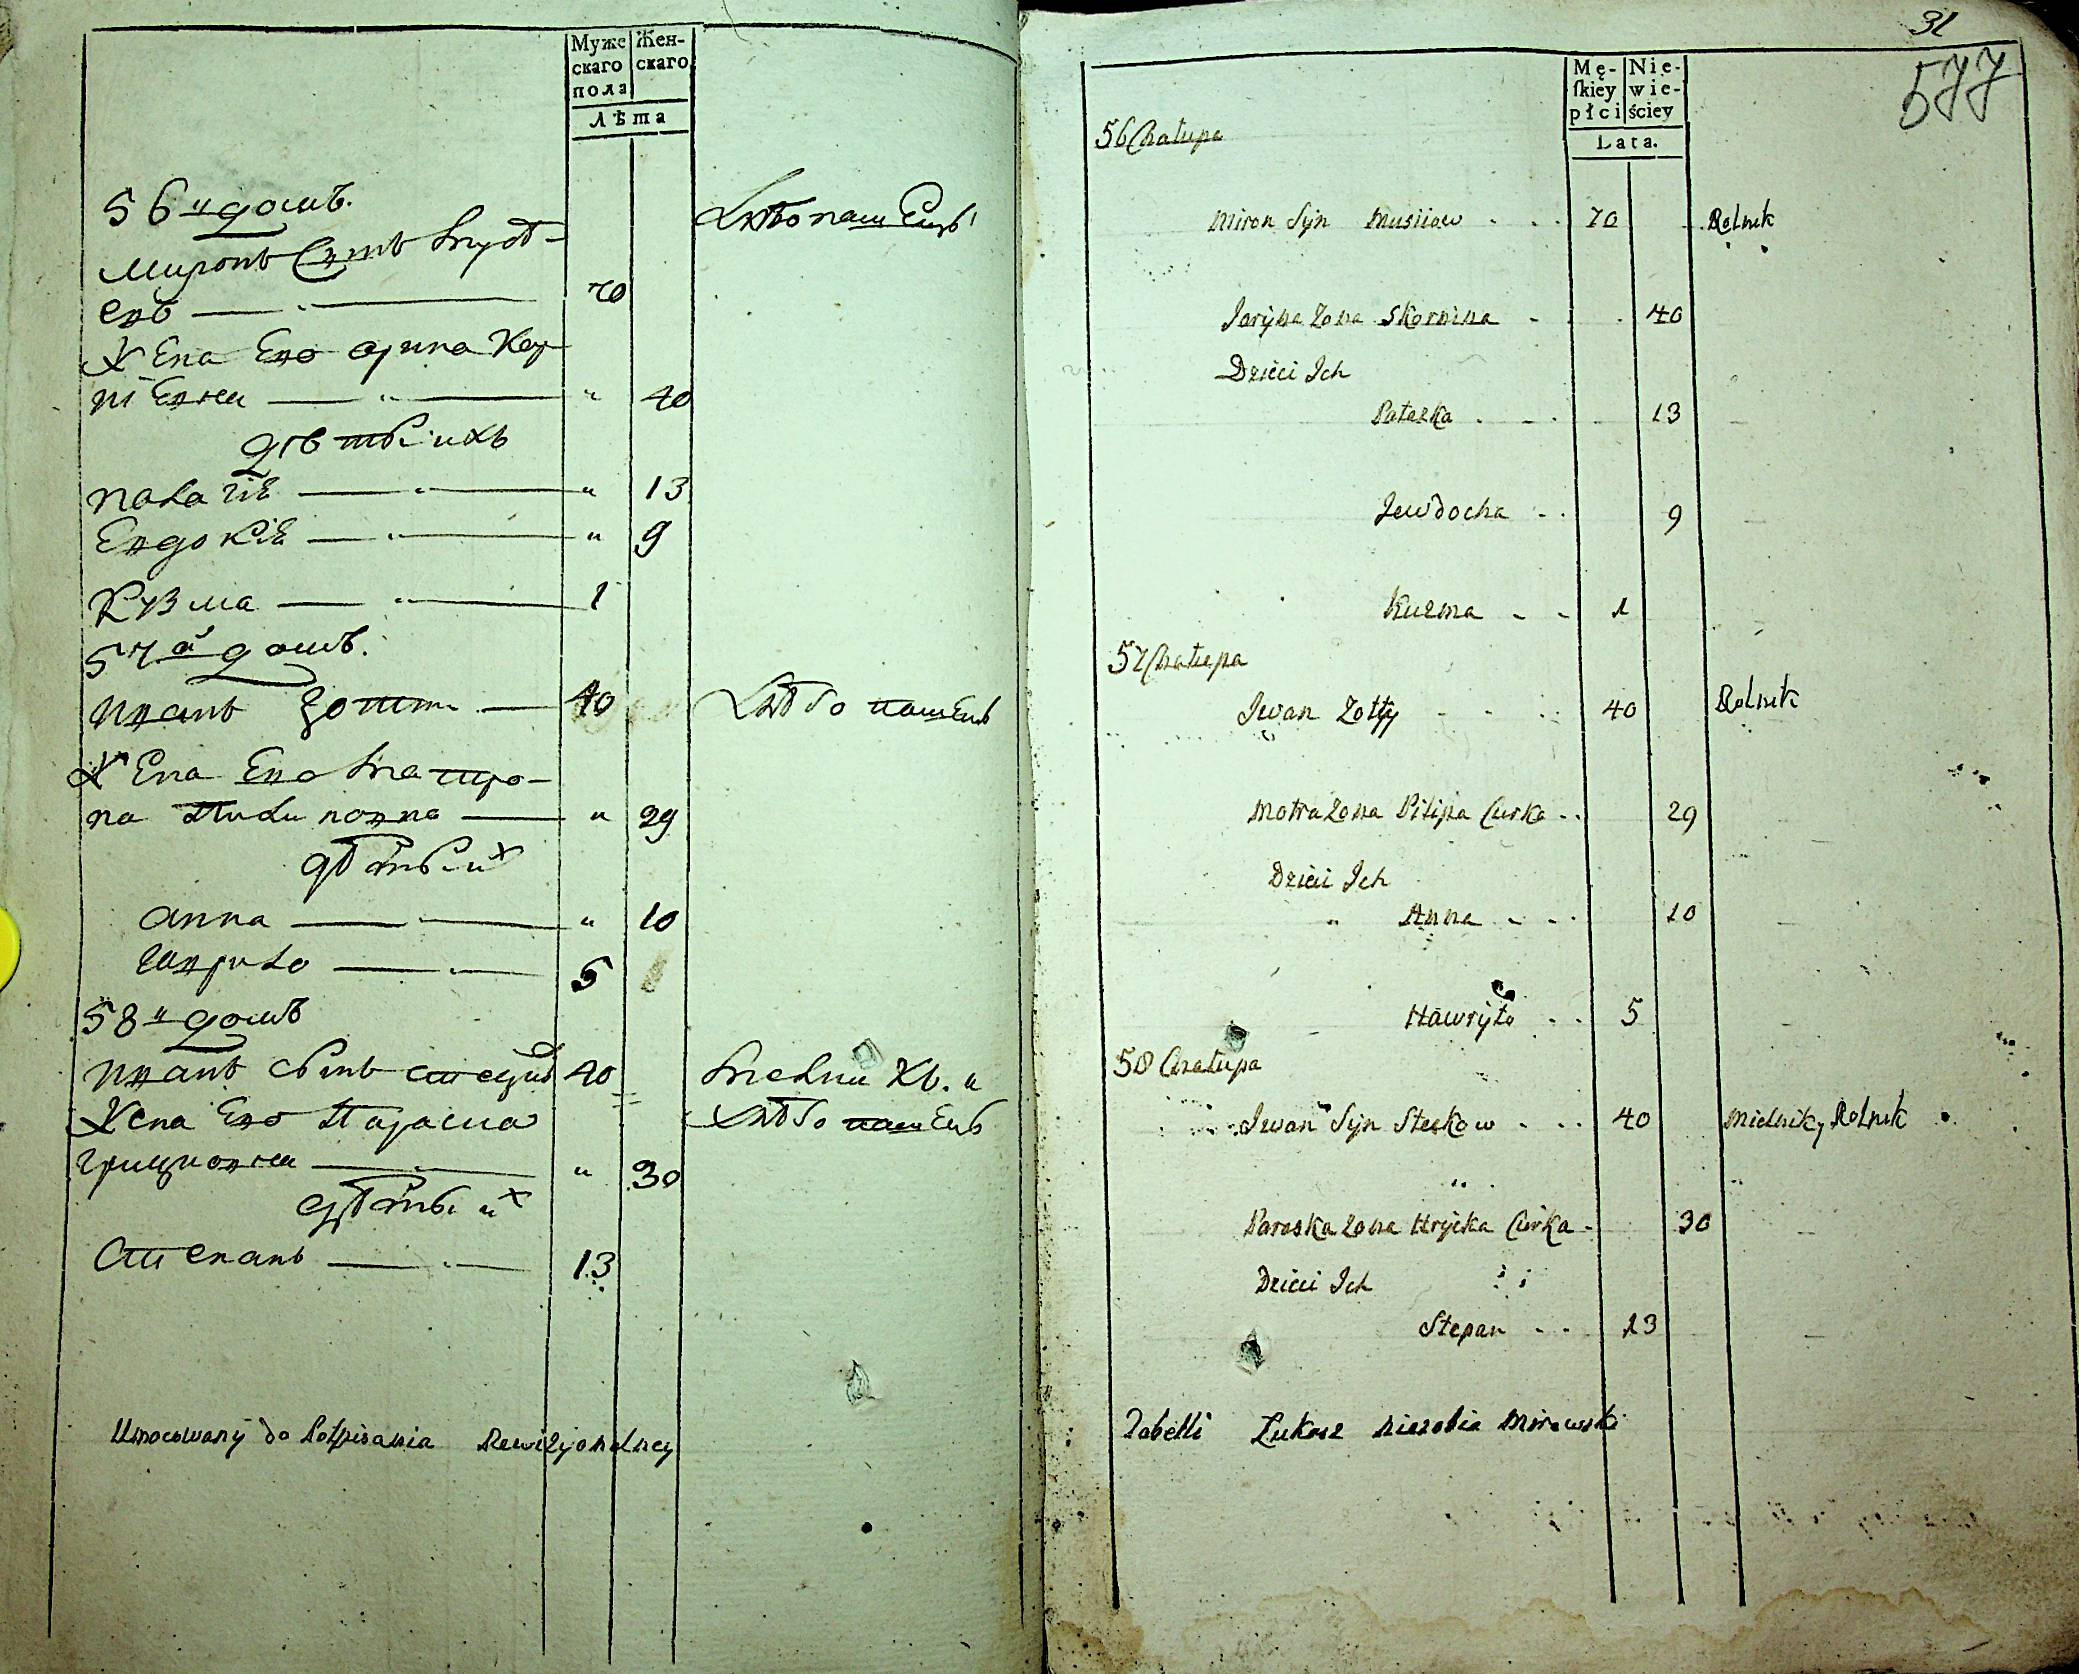 Муже
скаго
пола
Жен-
скаго
Лѣта
56 й домъ.
Миронъ Сынъ
евъ 70
Хлѣбопашецъ
Жена Его Арина Кор
нѣевна " 40
дѣти ихъ
Палагія " 13
Евдокія " 9
Кузма 1
57 й домъ.
Иванъ Золти 40 Хлѣбопашецъ
Жена Его Матро-
на Пилиповна " 29
дѣти их
Анна " 10
Гаврило 5
58 й домъ
Иванъ сынъ Стецив 40 Мелникъ и
Жена Его Параска Хлѣбопашецъ
Грициовна " 30
дѣти их
Степанъ 13
Umocowany do Potpisania Rewizyonalney
31
577
Mę-
ſkiey
płci
Nie-
wie-
ściey
Lata.
56 Chałupa
Miron Syn Musiiow 70 Rolnik
Jaryna Zona 40
Dzieci Ich
Palazka 13
Jewdocha 9
Kuzma 1
57 Chałupa
Iwan Zołty 40 Rolnik
Motra Zona Pilipa Curka 29
Dzieci Ich
Anna 10
Hawryło 5
58 Chałupa
Iwan Syn Steckow 40 Mielnik y Rolnik
Paraska Zona Hrycka Curka 30
Dzieci Ich
Stepan 13
Tabelli Łukasz Mirowski